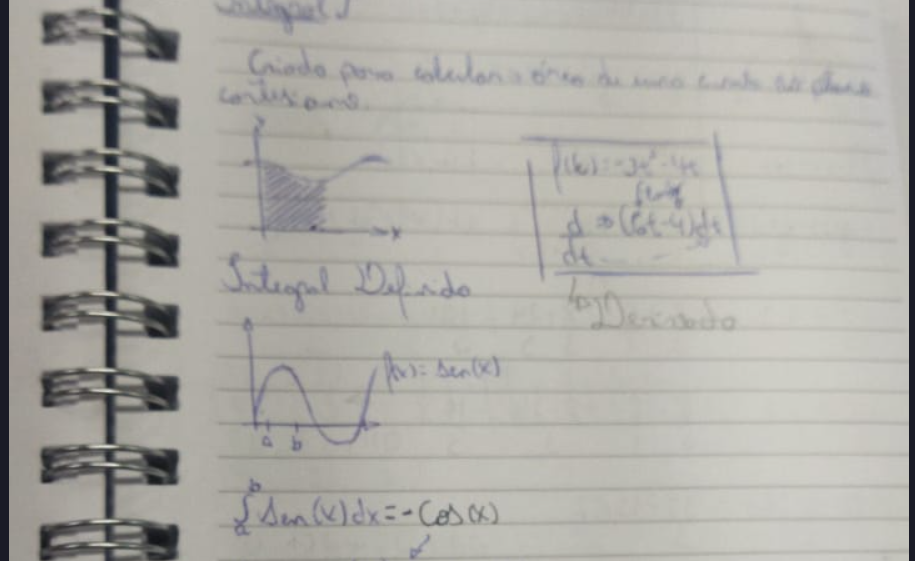 Integral
Criado para calcular a área de uma curva no plano
cartesiano.
y
x
d ⇒ (6t-4)dt
dt
↳ Derivada
Integral Definido
f(x)= Sen(x)
a b
∫ₐᵇ Sen(x)dx = -Cos(x)